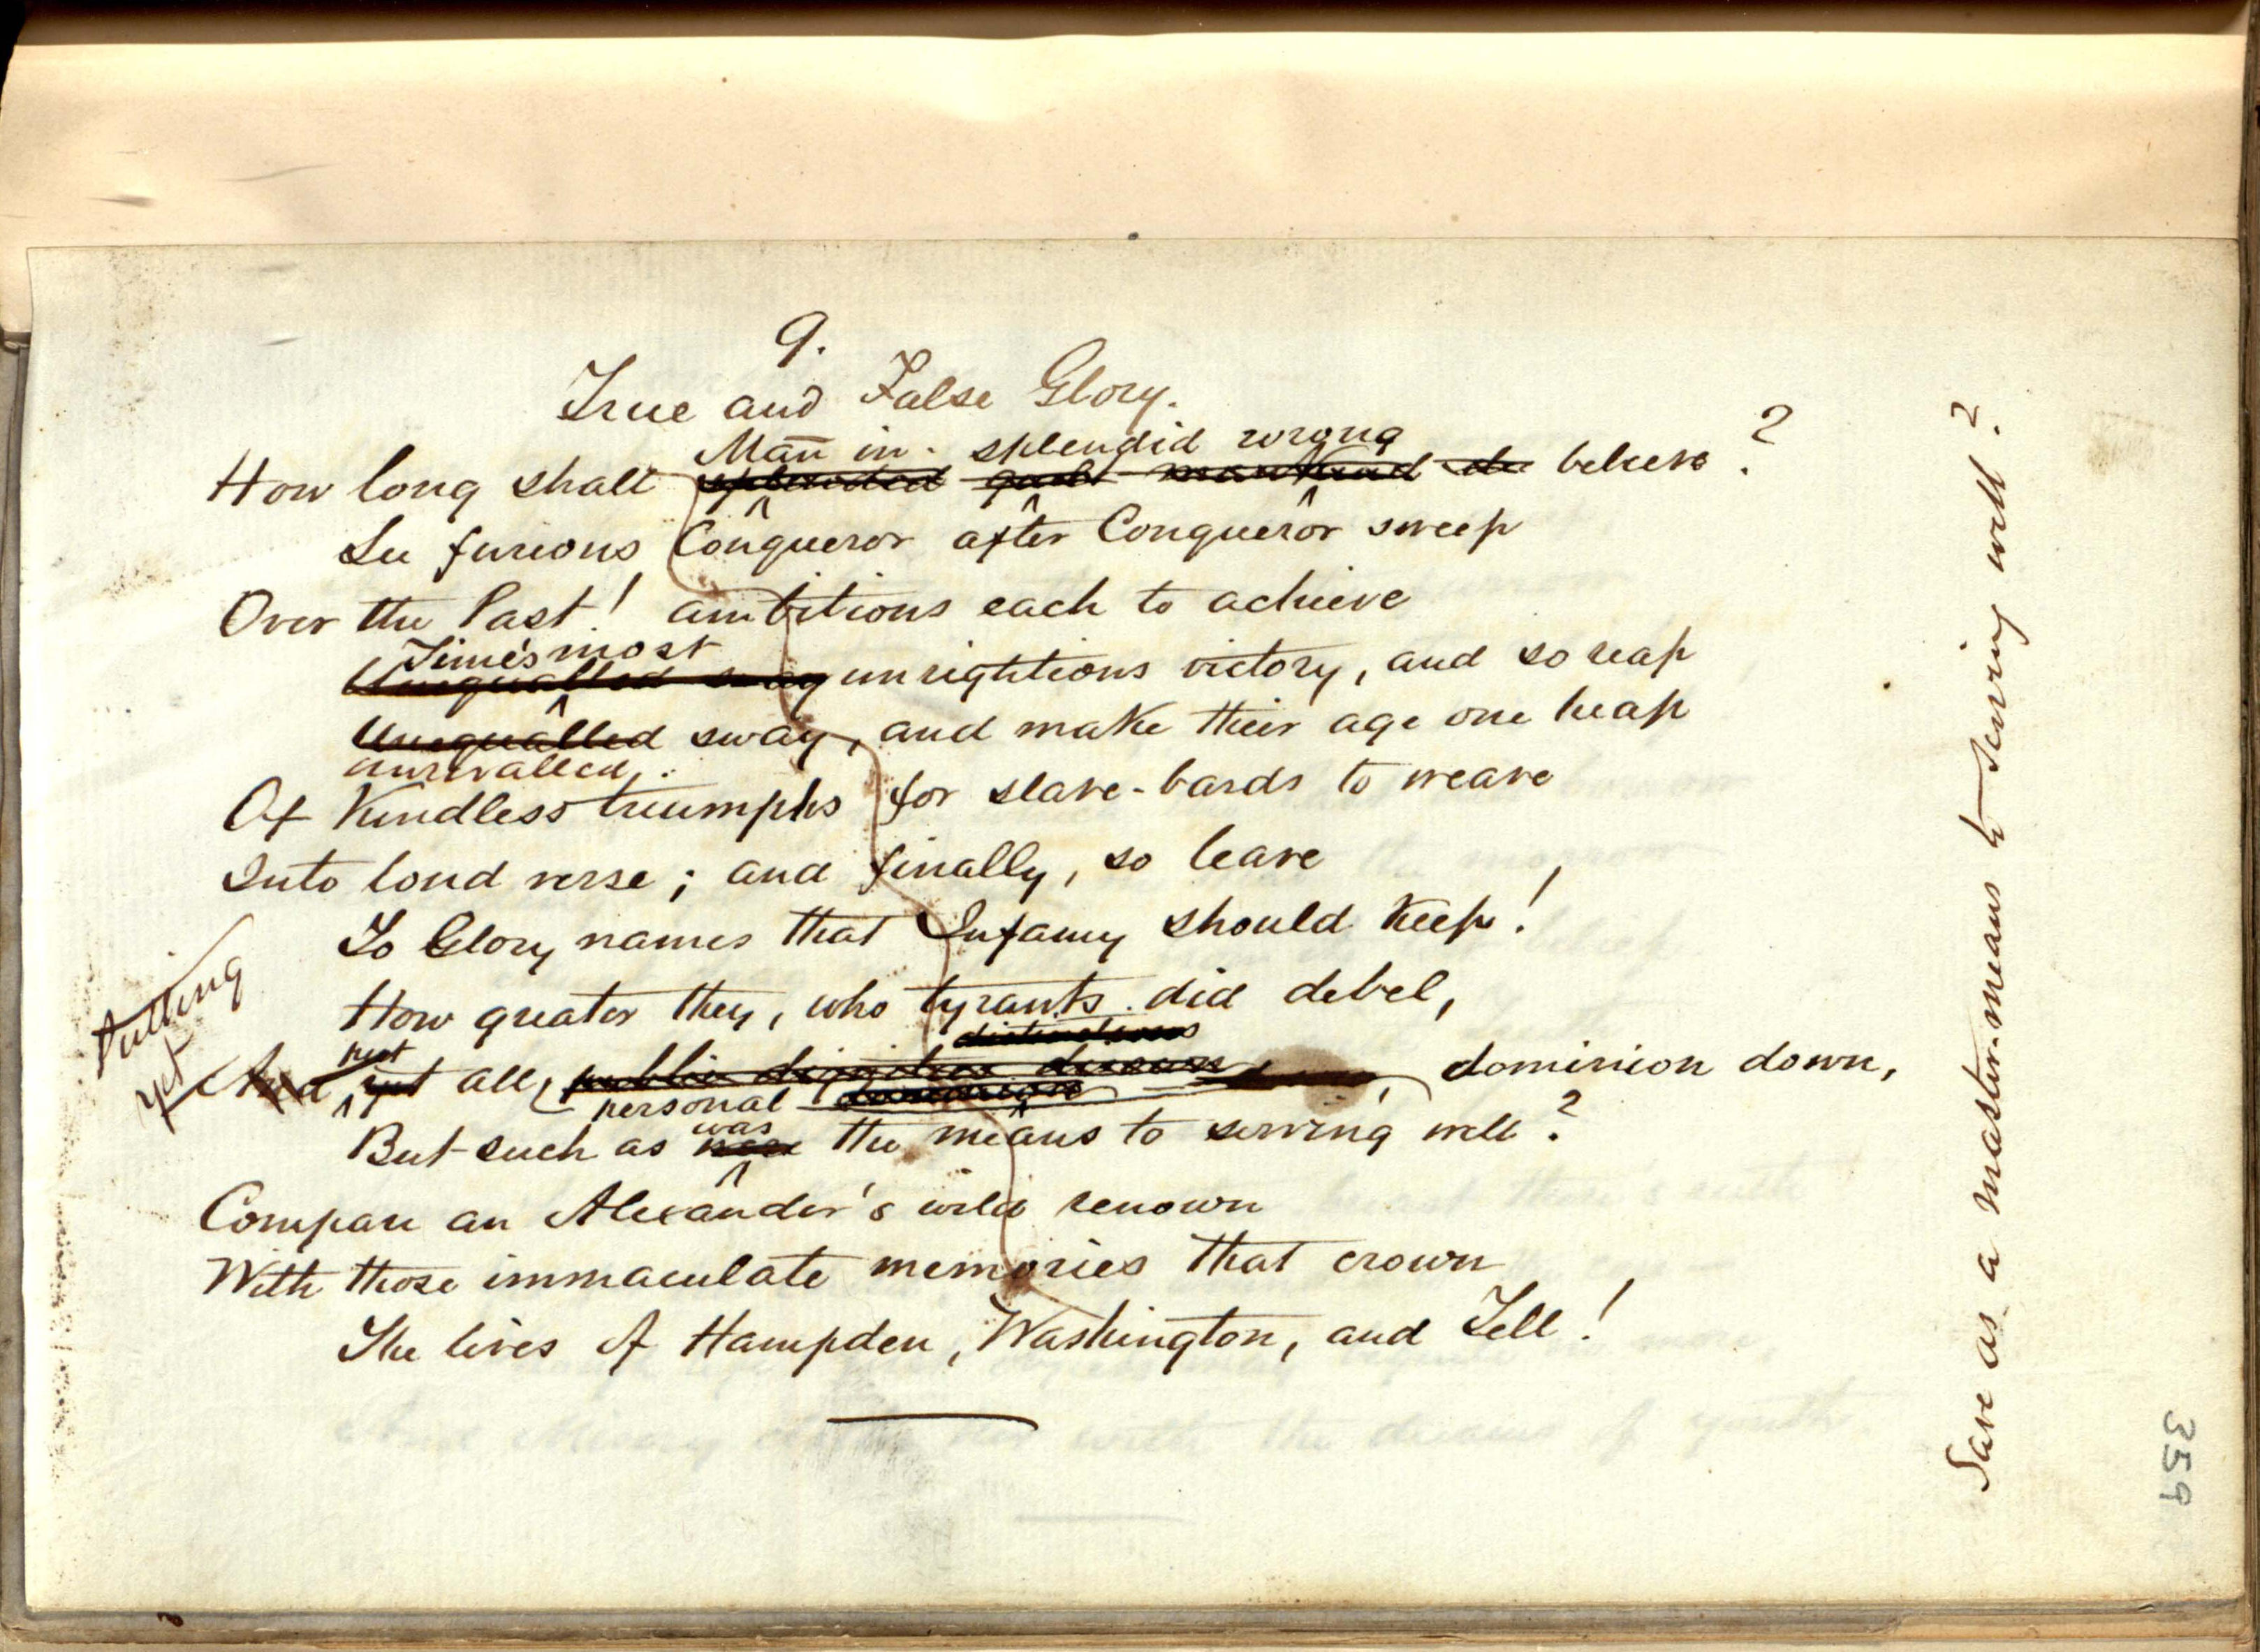 9.
True and False Glory.
Man in splendid wrong
How long shall splendid guilt mankind believe?
See furious Conqueror after Conqueror sweep
Over the Past! ambitious each to achieve
Time's most
Unequalled sway unrightious victory, and so reap
Unequalled sway, and make their age one heap
unrivalled,
Of Kindless triumphs for slave-bards to weave
Into loud verse; and finally, so leave
To Glory names that Infamy should keep!
How greater they, who tyrants did debel,
distinctions
put
And yet all, public dignities dominion down,
personal dominion
Putting
yet
was
But such as the means to serving well?
Compare an Alexander's wild renown
With those immaculate memories that crown
The lives of Hampden, Washington, and Tell!
Save as a master-means to serving well?
359